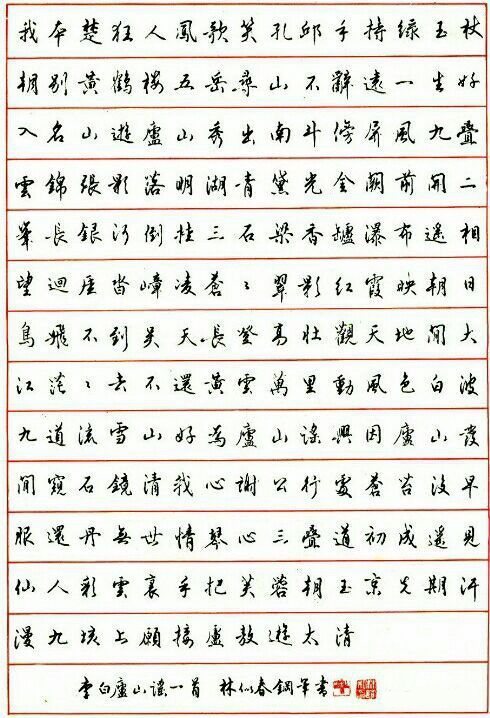 我本楚狂人鳳歌笑孔邱手持綠玉杖
朝別黃鶴樓五岳尋山不辭遠一生好
入名山遊廬山秀出南斗傍屏風九疊
雲錦張影落明湖青黛光金闕前開二
峯長銀河倒挂三石梁香爐瀑布遙相
望迴崖沓嶂凌蒼〻翠影紅霞映朝日
鳥飛不到吳天長登高壯觀天地間大
江茫〻去不還黃雲萬里動風色白波
九道流雪山好為廬山謠興因廬山發
閒窺石鏡清我心謝公行處蒼苔沒早
服還丹無世情琴心三疊道初成遙見
仙人彩雲裏手把芙蓉朝玉京先期汗
漫九垓上願接盧敖遊太清
李白廬山謠一首 林似春鋼筆書